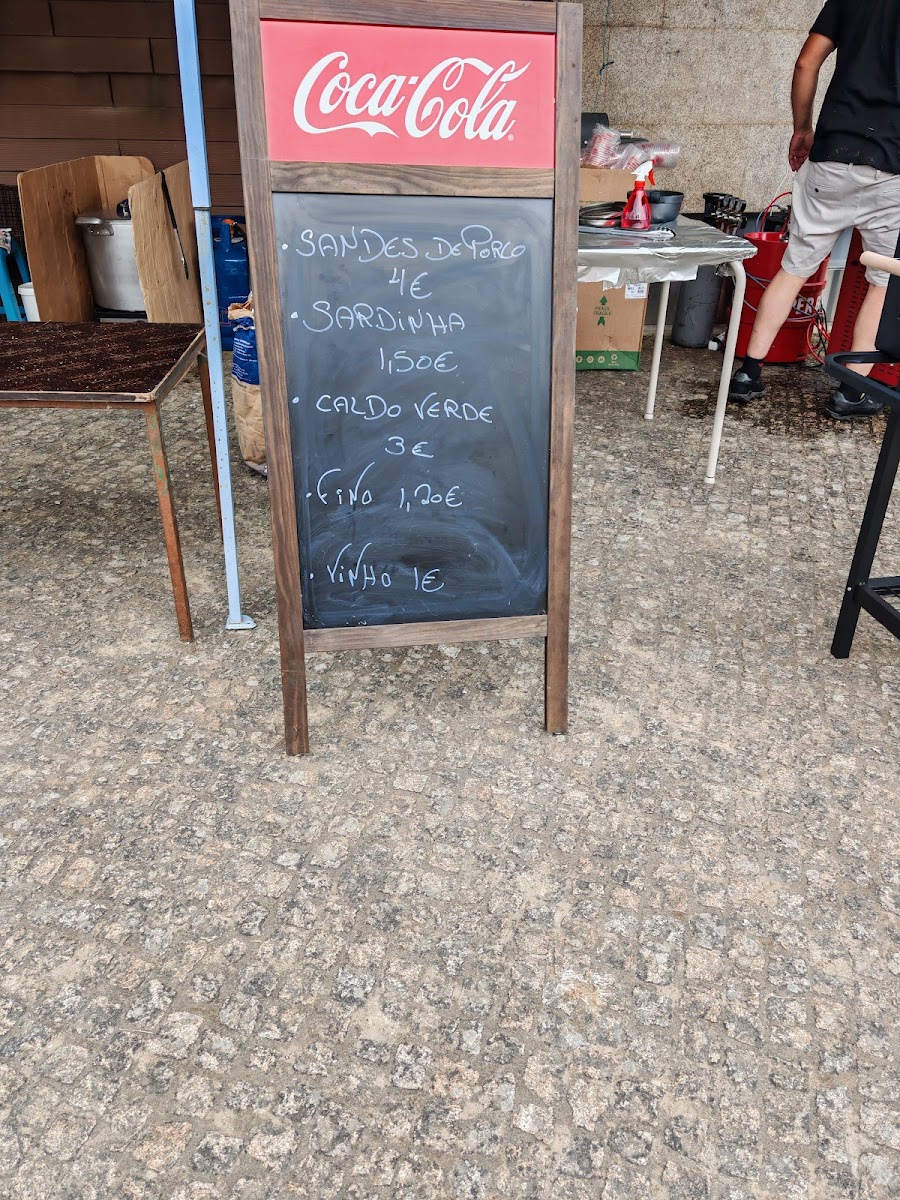 Coca-Cola
· SANDES DE PORCO
4€
· SARDINHA
1,50€
· CALDO VERDE
3€
· FINO 1,20€
· VINHO 1€